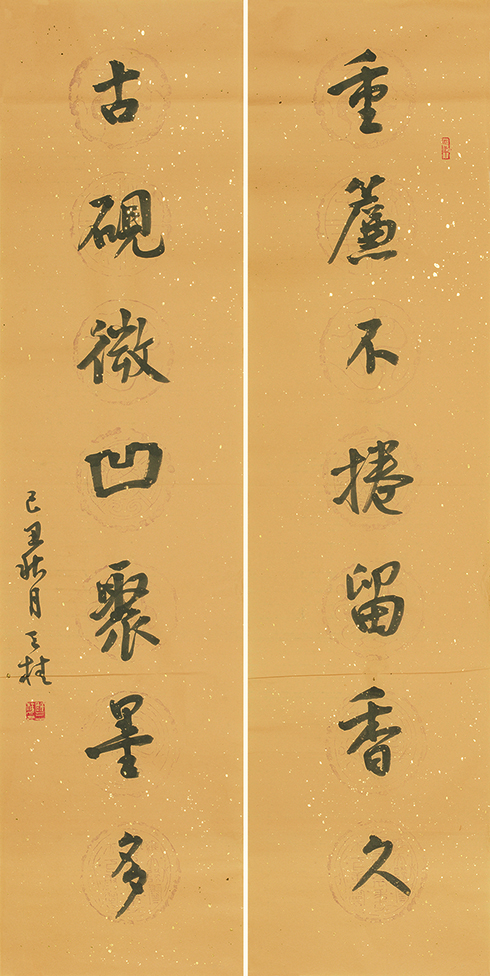 重簾不捲留香久
古硯微凹聚墨多
己丑秋月天柱